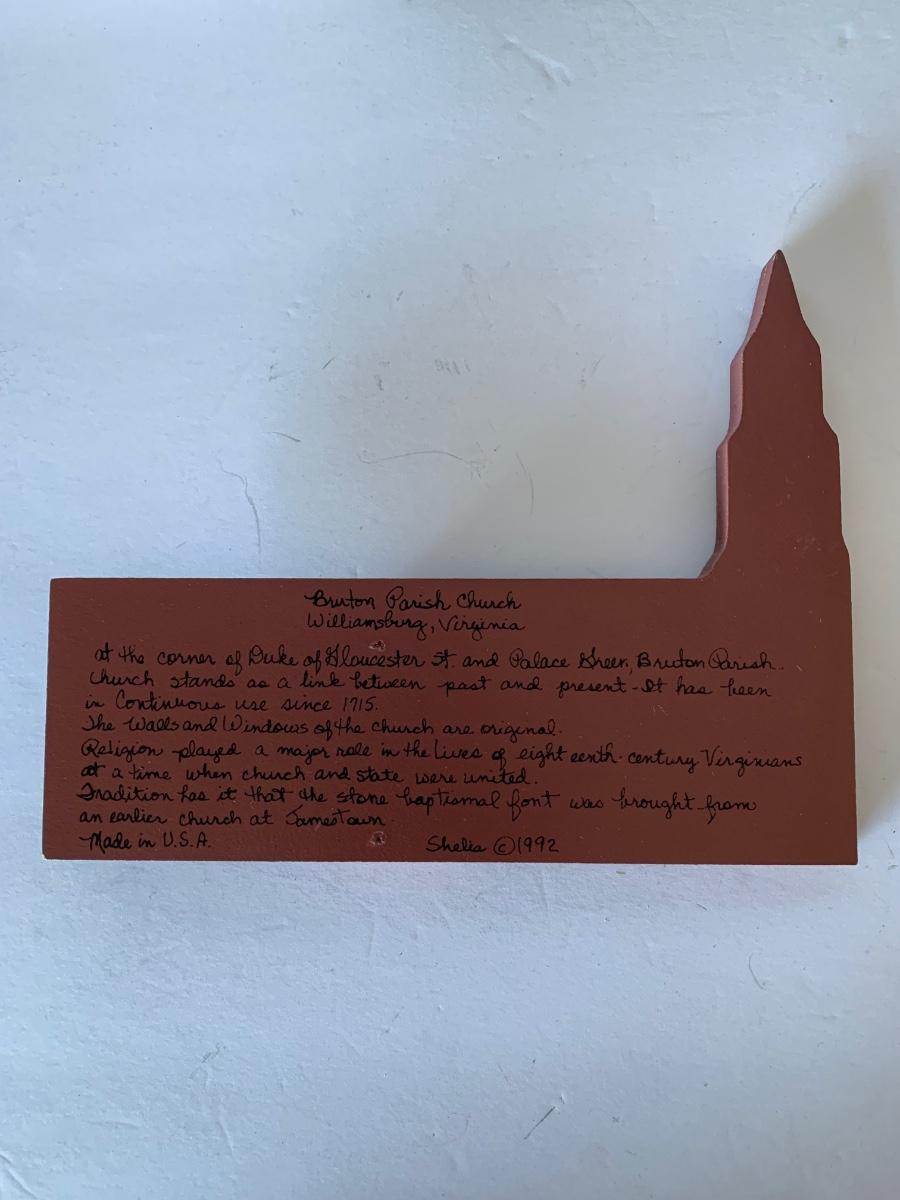 Bruton Parish Church
Williamsburg, Virginia
at the corner of Duke of Gloucester St. and Palace Green, Bruton Parish
Church stands as a link between past and present - It has been
in Continuous use since 1715.
The Walls and Windows of the church are original.
Religion played a major role in the lives of eighteenth-century Virginians
at a time when church and state were united.
Tradition has it that the stone baptismal font was brought from
an earlier church at Jamestown.
Made in U.S.A. Shelia ©1992